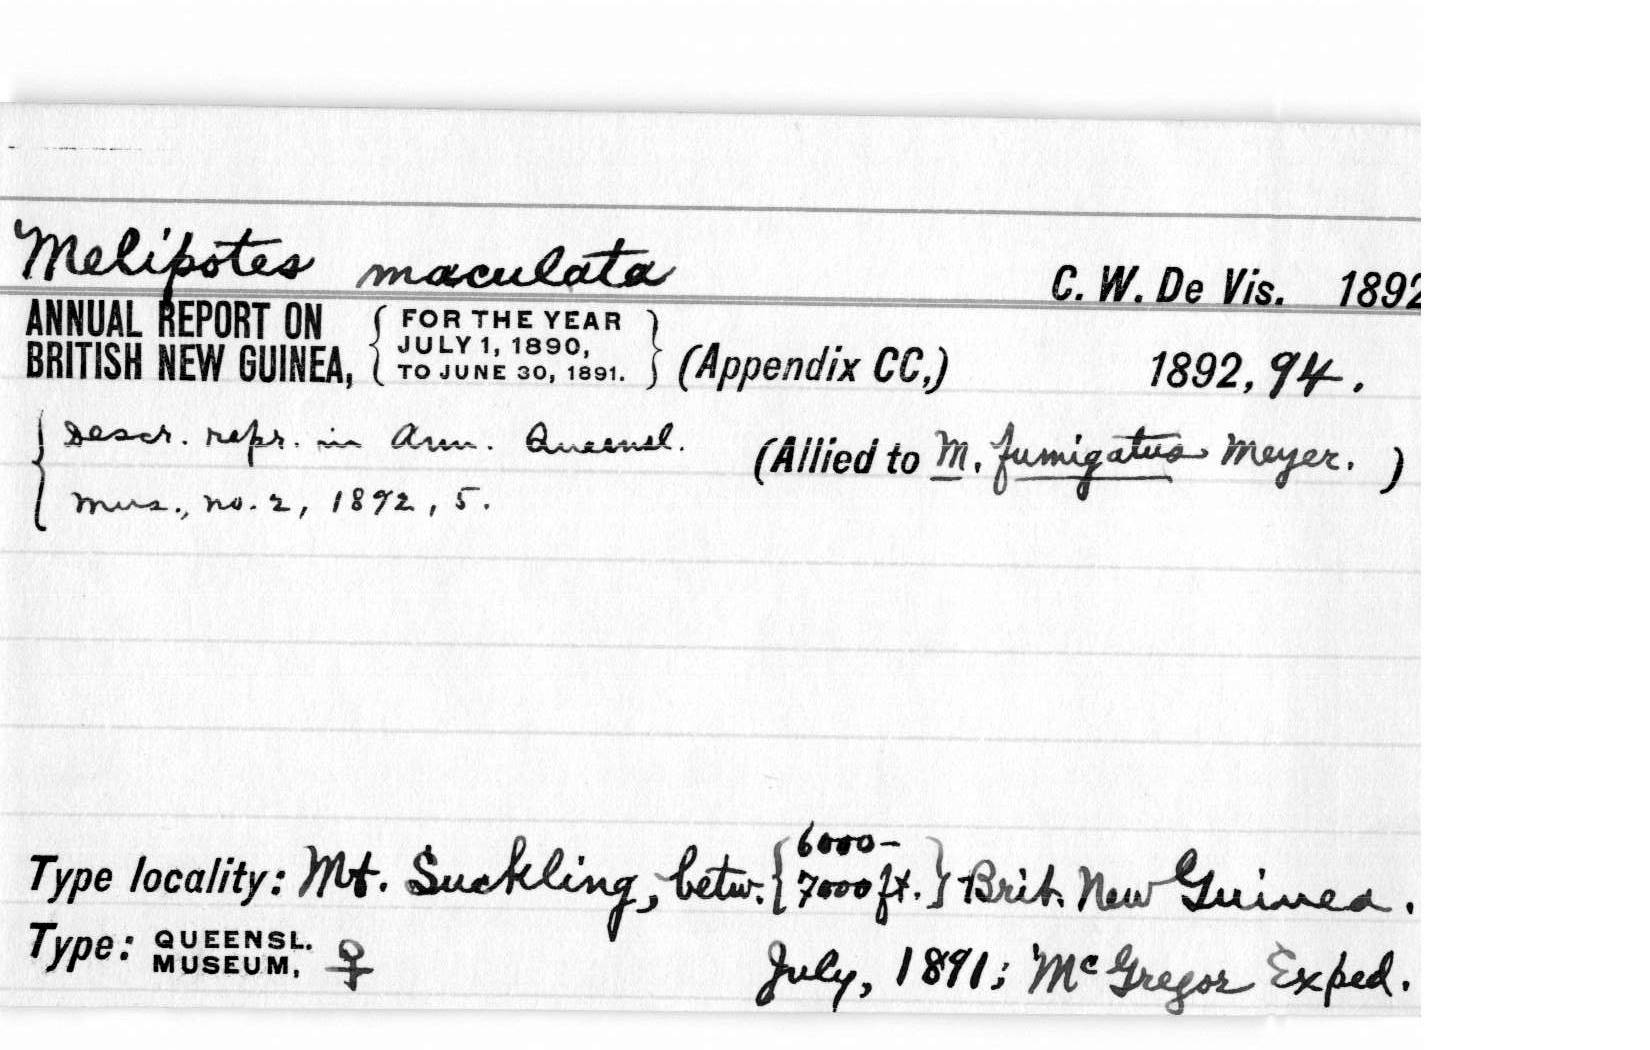 Melipotes maculata C. W. De Vis. 1892
ANNUAL REPORT ON { FOR THE YEAR }
BRITISH NEW GUINEA, JULY 1, 1890, (Appendix CC,) 1892, 94.
TO JUNE 30, 1891.
{ Descr. repr. in Ann. Queensl. (Allied to M. fumigatus Meyer. )
Mus., no. 2, 1892, 5.
Type locality: Mt. Suckling, betw. { 6000–7000 ft. } Brit. New Guinea.
Type: QUEENSL. MUSEUM, ♀ July, 1891; McGregor Exped.